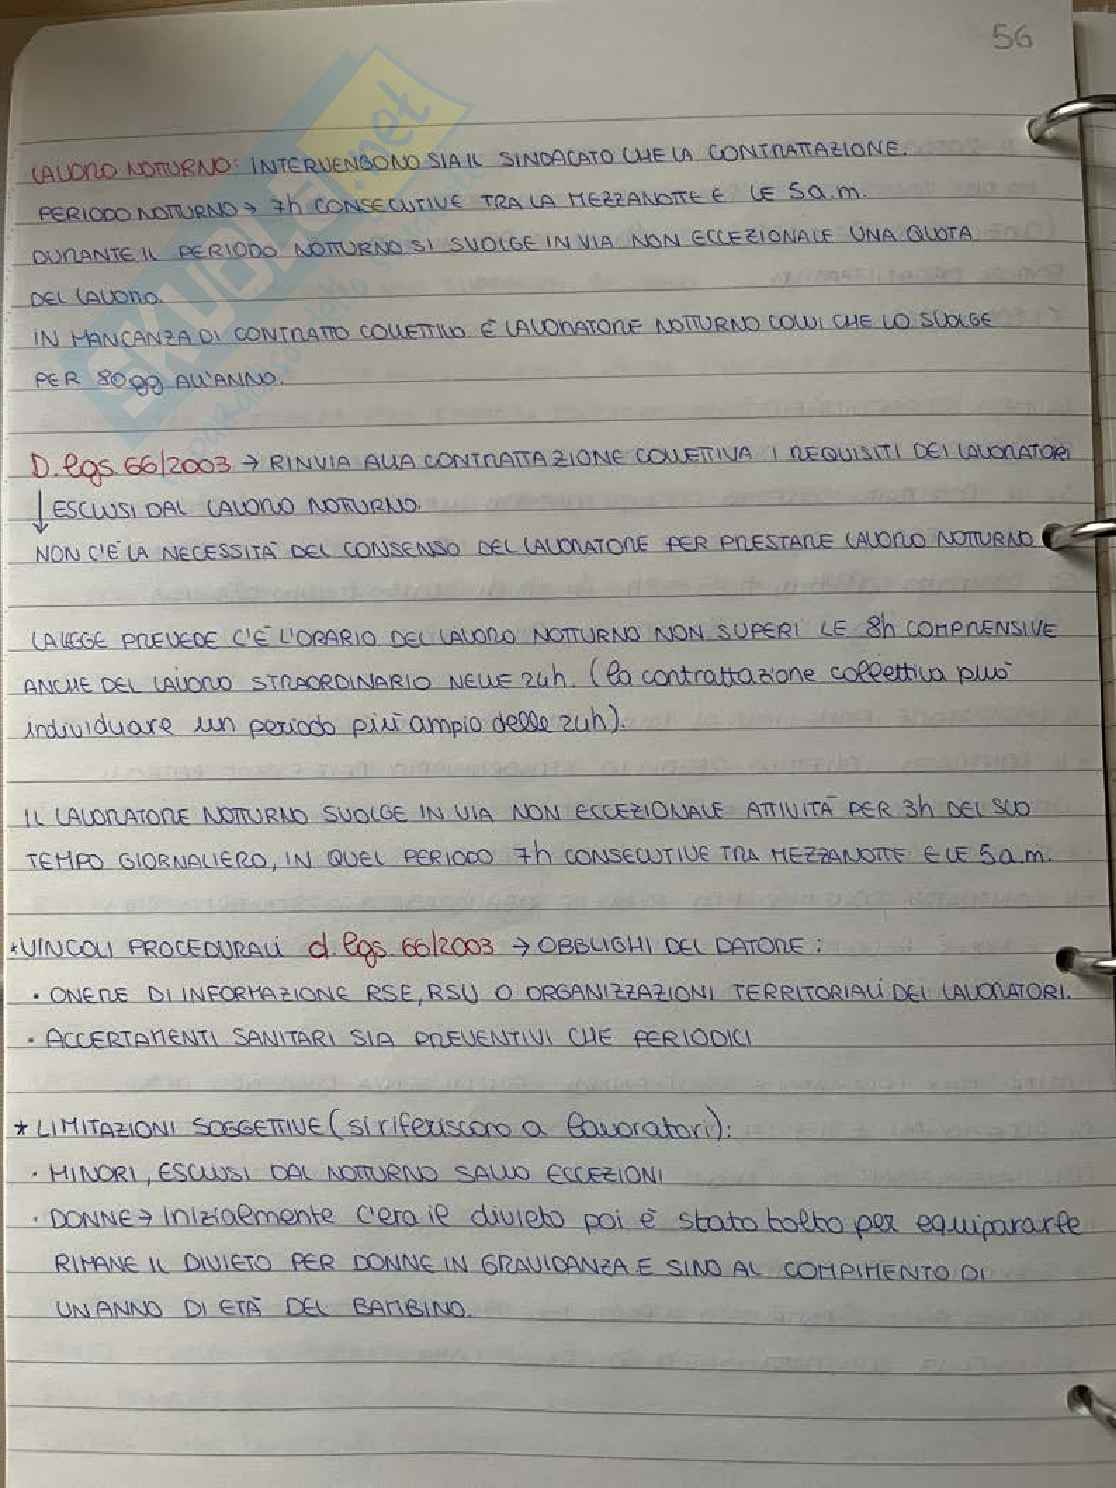 56
LAVORO NOTTURNO: INTERVENGONO SIA IL SINDACATO CHE LA CONTRATTAZIONE.
PERIODO NOTTURNO → 7h CONSECUTIVE TRA LA MEZZANOTTE E LE 5 a.m.
DURANTE IL PERIODO NOTTURNO SI SVOLGE IN VIA NON ECCEZIONALE UNA QUOTA
DEL LAVORO.
IN MANCANZA DI CONTRATTO COLLETTIVO È LAVORATORE NOTTURNO COLUI CHE LO SVOLGE
PER 80 gg ALL'ANNO.
D.lgs. 66/2003 → RINVIA ALLA CONTRATTAZIONE COLLETTIVA I REQUISITI DEI LAVORATORI
↓ ESCLUSI DAL LAVORO NOTTURNO.
NON C'È LA NECESSITÀ DEL CONSENSO DEL LAVORATORE PER PRESTARE LAVORO NOTTURNO
LA LEGGE PREVEDE C'È L'ORARIO DEL LAVORO NOTTURNO NON SUPERI LE 8h COMPRENSIVE
ANCHE DEL LAVORO STRAORDINARIO NELLE 24h. (la contrattazione collettiva può
individuare un periodo più ampio delle 24h).
IL LAVORATORE NOTTURNO SVOLGE IN VIA NON ECCEZIONALE ATTIVITÀ PER 3h DEL SUO
TEMPO GIORNALIERO, IN QUEL PERIODO 7h CONSECUTIVE TRA MEZZANOTTE E LE 5 a.m.
*VINCOLI PROCEDURALI d.lgs. 66/2003 → OBBLIGHI DEL DATORE:
· ONERE DI INFORMAZIONE RSE, RSU O ORGANIZZAZIONI TERRITORIALI DEI LAVORATORI.
· ACCERTAMENTI SANITARI SIA PREVENTIVI CHE PERIODICI
* LIMITAZIONI SOGGETTIVE (si riferiscono a lavoratori):
· MINORI, ESCLUSI DAL NOTTURNO SALVO ECCEZIONI
· DONNE → Inizialmente c'era il divieto poi è stato tolto per equipararle
RIMANE IL DIVIETO PER DONNE IN GRAVIDANZA E SINO AL COMPIMENTO DI
UN ANNO DI ETÀ DEL BAMBINO.
SKUOLA.net